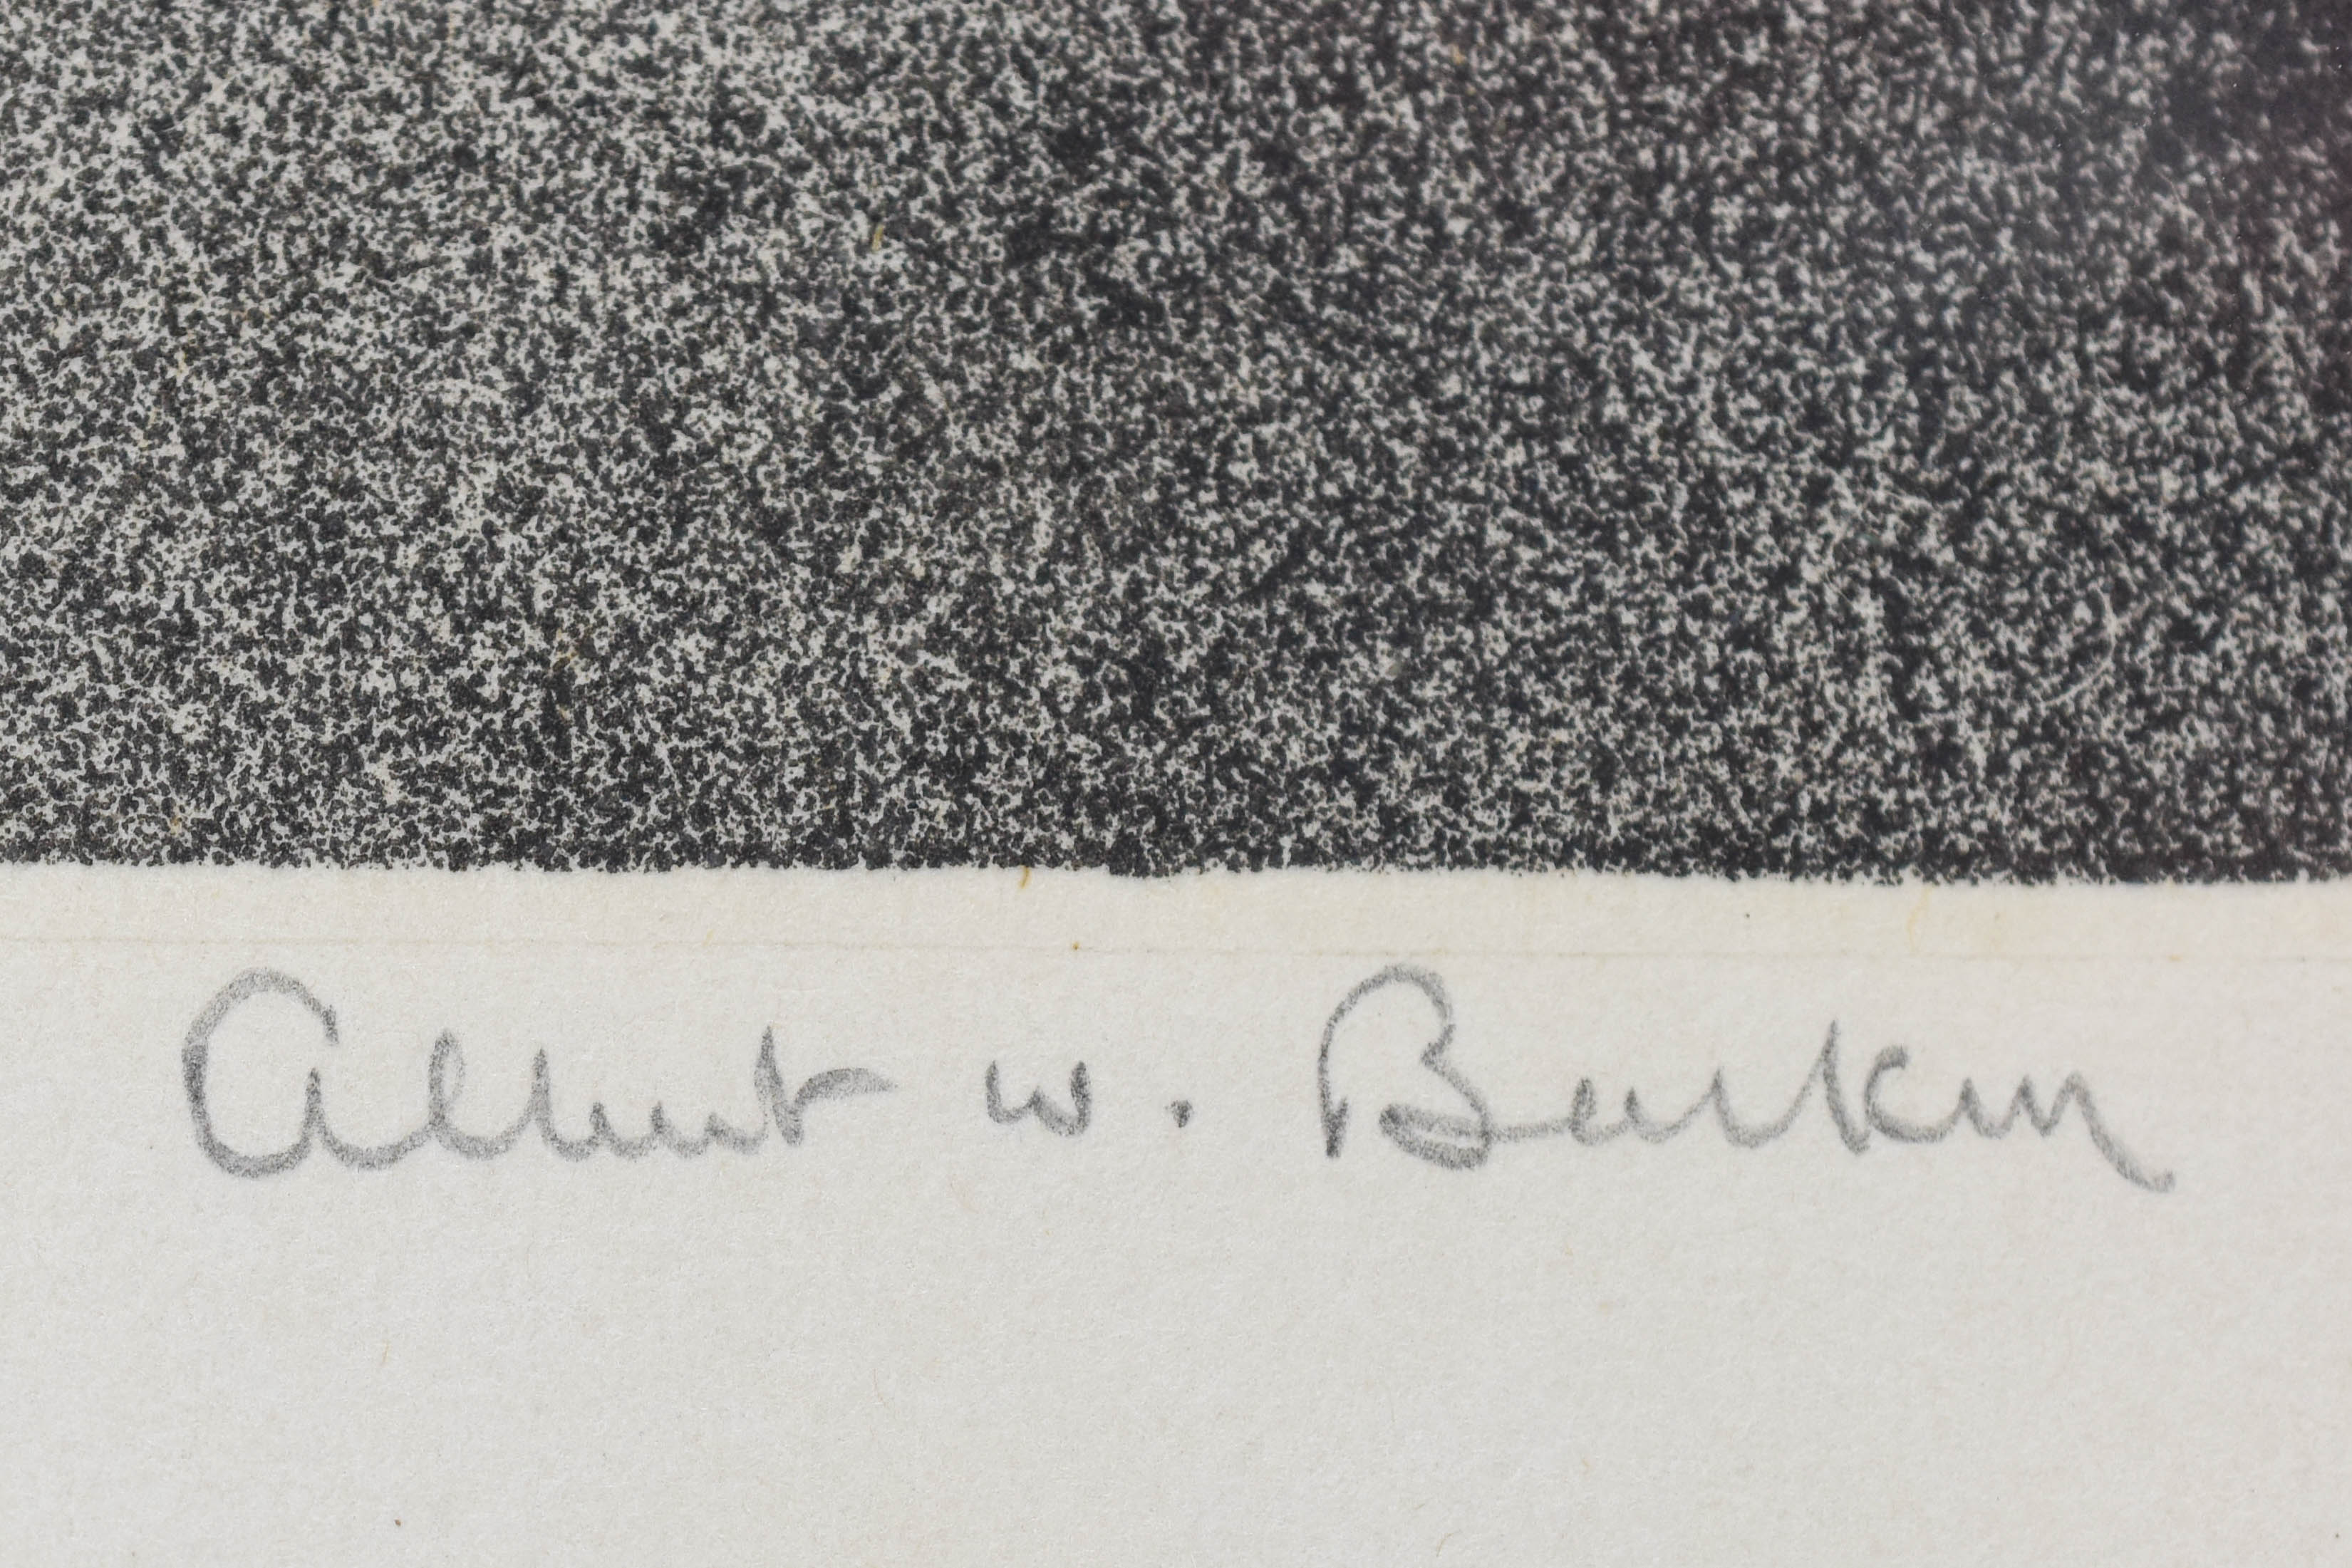 Albert W. Barker